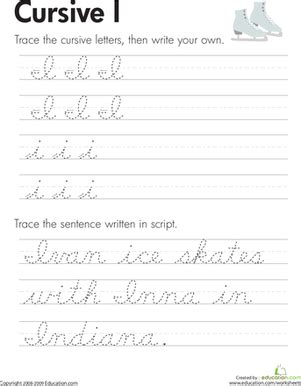 Cursive I
Trace the cursive letters, then write your own.
I I I
I I I
i i i
i i i
Trace the sentence written in script.
Ivan ice skates
with Inna in
Indiana.
Copyright 2008-2009 Education.com
Created by: education.com
www.education.com/worksheets